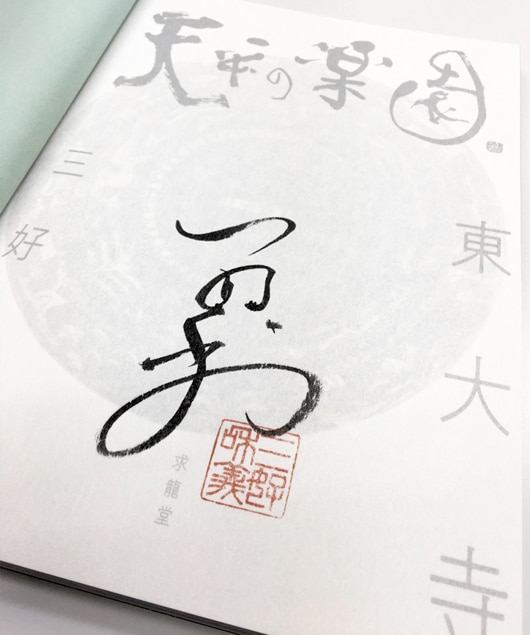 天平の楽園
東大寺
三好
求龍堂
三好和義